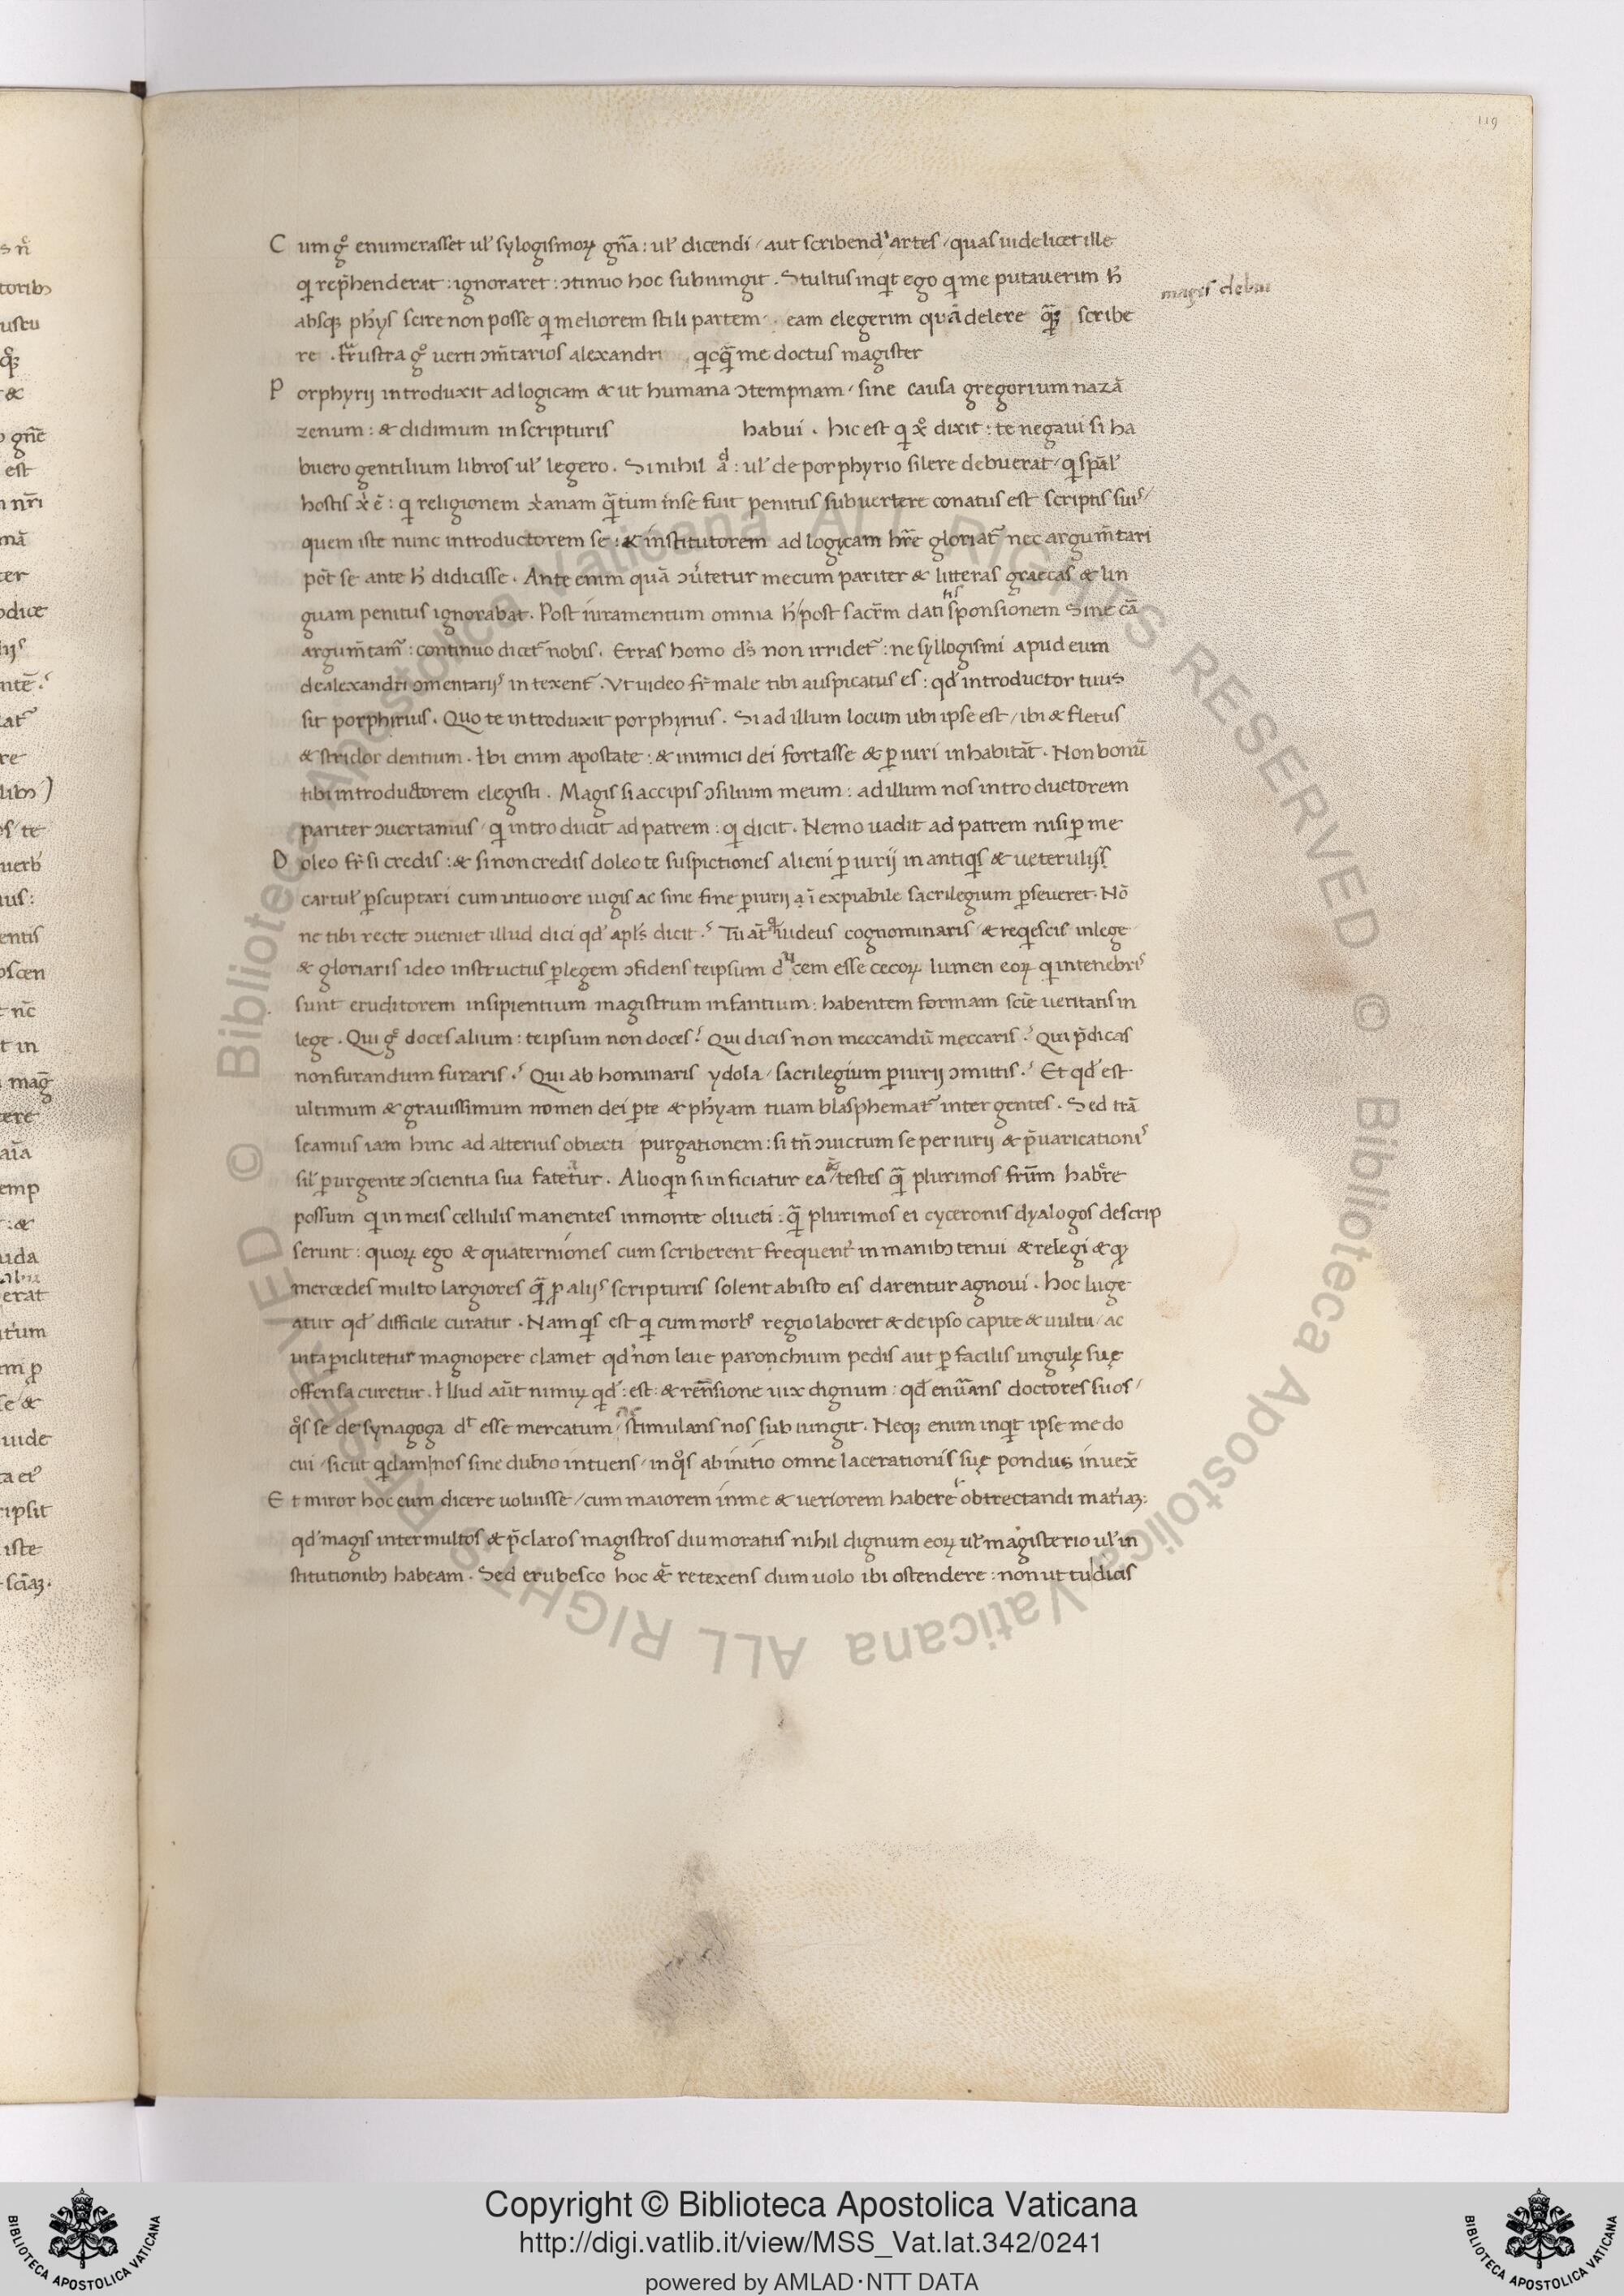 119
C um gͦ enumerasset ul̓ sylogismoꝝ gn̄a : ul̓ dicendi / aut scribend' artes / quas uidelicet ille
qi rep̄henderat : ignoraret : ↄtinuo hoc subiungit . Stultus inqit ego qi me putauerim h̓
magis debui
absqꝫ ph̓ys scire non posse qi meliorem stili partem . eam elegerim quā delere qͣꝫ scribe
re . Frustra gͦ uerti ↄm̄tarios alexandri qicqͣ me doctus magister
P orphyrij introduxit ad logicam & ut humana ↄtempnam / sine causa gregorium nazā
zenum : & didimum in scripturis habui . hic est qi xͦ dixit : te negaui si ha
buero gentilium libros ul̓ legero . Si nihil aͩ : ul̓ de porphyrio silere debuerat / qi sp̄al̓
hostis x̓ ē : qi religionem x̓anam qͣtum inse fuit penitus subuertere conatus est scriptis suis /
quem iste nunc introductorem se : & institutorem ad logicam hr̄e gloriat᷑ nec argum̄tari
pōt se ante h̓ didicisse . Ante enim quā ↄu̓tetur mecum pariter & litteras graecas & lin
guam penitus ignorabat . Post iuramentum omnia h̓ / post sacr̄m dati sponsionem Sine cā
argum̄tam᷑ : continuo dicet᷑ nobis . Erras homo d̄s non irridet᷑ : ne syllogismi apud eum
dealexandri ↄmentarijs in texent᷑ . Vt uideo fr̄ male tibi auspicatus es : qd̓ introductor tuus
sit porphirius . Quo te introduxit porphyrius . Si ad illum locum ubi ipse est / ibi & fletus
& stridor dentium . Ibi enim apostate : & inimici dei fortasse & ꝑiuri inhabitāt . Non bonū
tibi introductorem elegisti . Magis si accipis ↄsilium meum : ad illum nos introductorem
pariter ↄuertamus / qi introducit ad patrem : qi dicit . Nemo uadit ad patrem nisi ꝑ me
D oleo fr̄ si credis : & si non credis doleo te suspictiones alieni ꝑiurij in antiqis & ueterulijs
cartul̓ ꝑscuptari cum intuo ore iugis ac sine fine ꝑiurij a ī expiabile sacrilegium ꝑseueret . Nō
ne tibi recte ↄueniet illud dici qd̓ apl̄s dicit . Tu āt iudeus cognominaris / & reqiescis inlege
& gloriaris ideo instructus ꝑlegem ↄfidens teipsum ducem esse cecoꝝ lumen eoꝝ qi intenebris
sunt eruditorem insipientium magistrum infantium : habentem formam sciē ueritatis in
lege . Qui gͦ doces alium : teipsum non doces ? Qui dicis non meccandū meccaris ? Qui p̄dicas
non furandum furaris ? Qui ab hominaris ydola / sacrilegium ꝑiurij ↄmittis ? Et qd̓ est
ultimum & grauissimum nomen dei ꝑte & ph̓yam tuam blasphemat᷑ inter gentes . Sed trā
seamus iam hinc ad alterius obiecti purgationem : si tn̄ ↄuictum se periurij & p̄uaricationis
sil̓ ꝑurgente ↄscientia sua fatetur . Alioqin si inficiatur ea / testes qͣ plurimos fr̄um hab̓re
possum qi in meis cellulis manentes inmonte oliueti . qͣ plurimos ei cyceronis dyalogos descrip
serunt : quoꝝ ego & quaterniones cum scriberent frequent̓ in manibꝫ tenui & relegi & qi
mercedes multo largiores qͣ ꝓ alijs scripturis solent abisto eis darentur agnoui . Hoc luge
atur qd̓ difficile curatur . Nam qis est qi cum morbͦ regio laboret & deipso capite & uultu / ac
uita ꝑiclitetur magnopere clamet qd̓ non leue paronchium pedis aut ꝑfacilis ungulę suę
offensa curetur . Illud aūt nimiꝝ qd̓ : est : & rēnsione uix dignum : qd̓ enu̅ans doctores suos /
qͦs se de synagoga dt̄ esse mercatum / stimulans nos subiungit . Neqꝫ enim inqit ipse me do
cui / sicut qidam nos sine dubio intuens / in qͦs abinitio omne lacerationis suę pondus inuex̄
E t miror hoc eum dicere uoluisse / cum maiorem inme & ueriorem habere obtrectandi mat̓iaꝫ :
qd̓ magis inter multos & p̄claros magistros diu moratus nihil dignum eoꝝ ul̓ magisterio ul̓ in
stitutionibꝫ habeam . Sed erubesco hoc & retexens dum uolo ibi ostendere : non ut tu dicis
Copyright © Biblioteca Apostolica Vaticana
http://digi.vatlib.it/view/MSS_Vat.lat.342/0241
powered by AMLAD·NTT DATA
BIBLIOTECA APOSTOLICA VATICANA
BIBLIOTECA APOSTOLICA VATICANA
© Biblioteca Apostolica Vaticana ALL RIGHTS RESERVED © Biblioteca Apostolica Vaticana ALL RIGHTS RESERVED